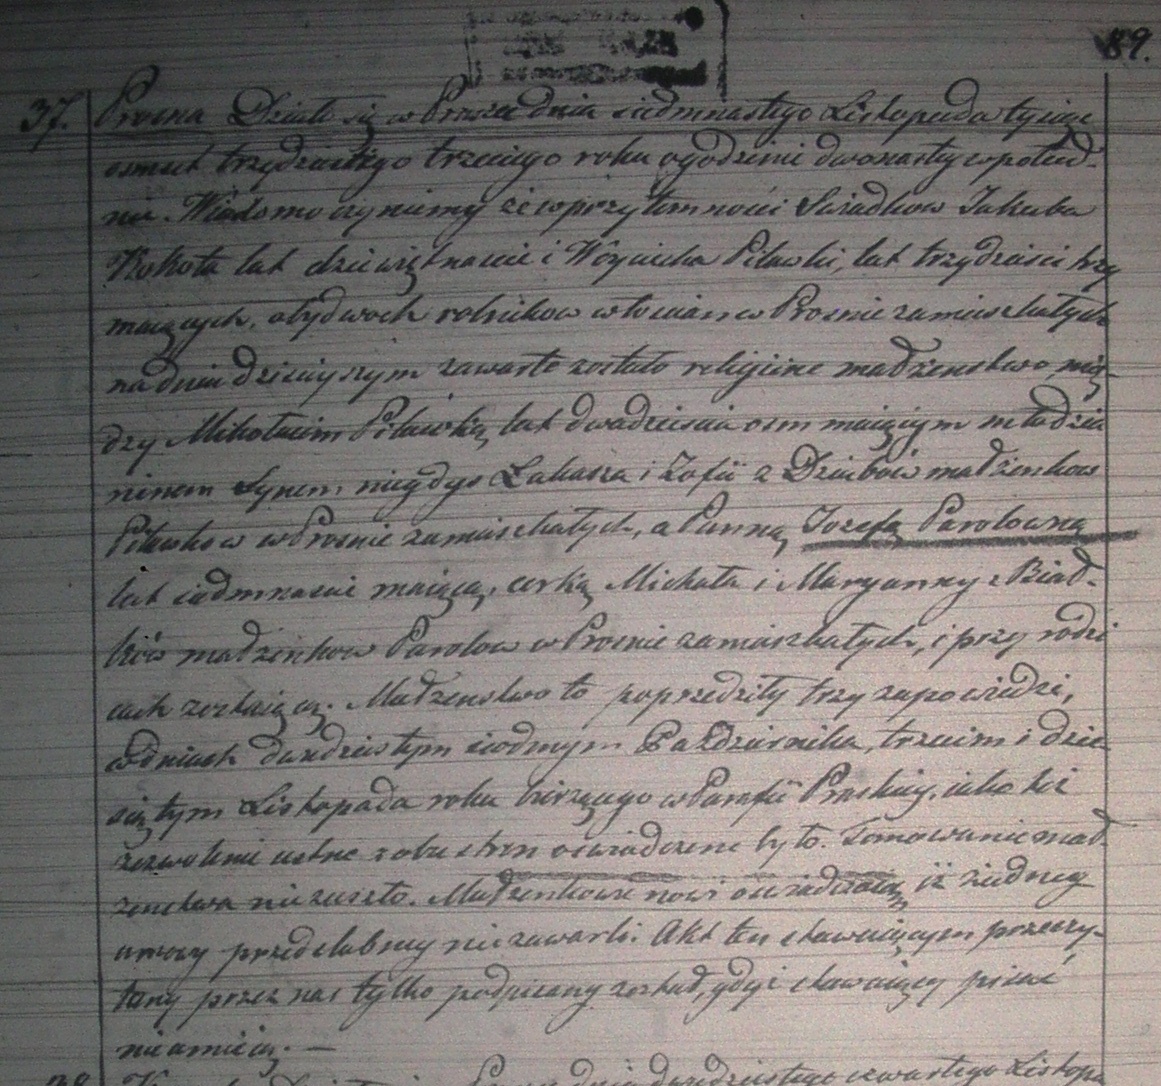 89.
37. Prosna Działo się w Prasce dnia siedmnastego Listopada tysiąc
osmset trzydziestego trzeciego roku o godzinie dwonastey w połud-
nie. Wiadomo czyniemy ze w przytomnosci Swiadkow Jakuba
Kokota lat dziewiętnascie i Woyciecha Pilawki, lat trzydziesci trzy
maiących, obydwoch rolnikow włoscian w Prosnie zamieszkałych
na dniu dzisieyszym zawarte zostało religijne małżenstwo mię-
dzy Mikołaiem Pilawką, lat dwadziescia osm maiącym młodzia
ninem Synem niegdys Łukasza i Zofii z Dziubów małżenkow
Pilawkow w Prosnie zamieszkałych, a Panną Jozefą Parolowną
lat siedmnascie maiącą, corką Michała i Maryanny z Biad-
ków małżenkow Parolow w Prosnie zamieszkałych, i przy rodzi
cach zostaiącą. Małżenstwo to poprzedziły trzy zapowiedzi,
w dniach dwudziestym siodmym Października, trzecim i dzie-
siątym Listopada roku bieżącego w Parafii Praskiey, iako też
zezwolenie ustne z obu stron oswiadczone było. Tamowanie mał
zenstwa nie zaszło. Małżenkowie nowi oswiadczaią iż żadney
umowy przedslubney nie zawarli. Akt ten stawaiącym przeczy-
tany przez nas tylko podpisany został, gdyż stawaiący pisać
nie umieią. —
38. dnia dwudziestego czwartego Listopa